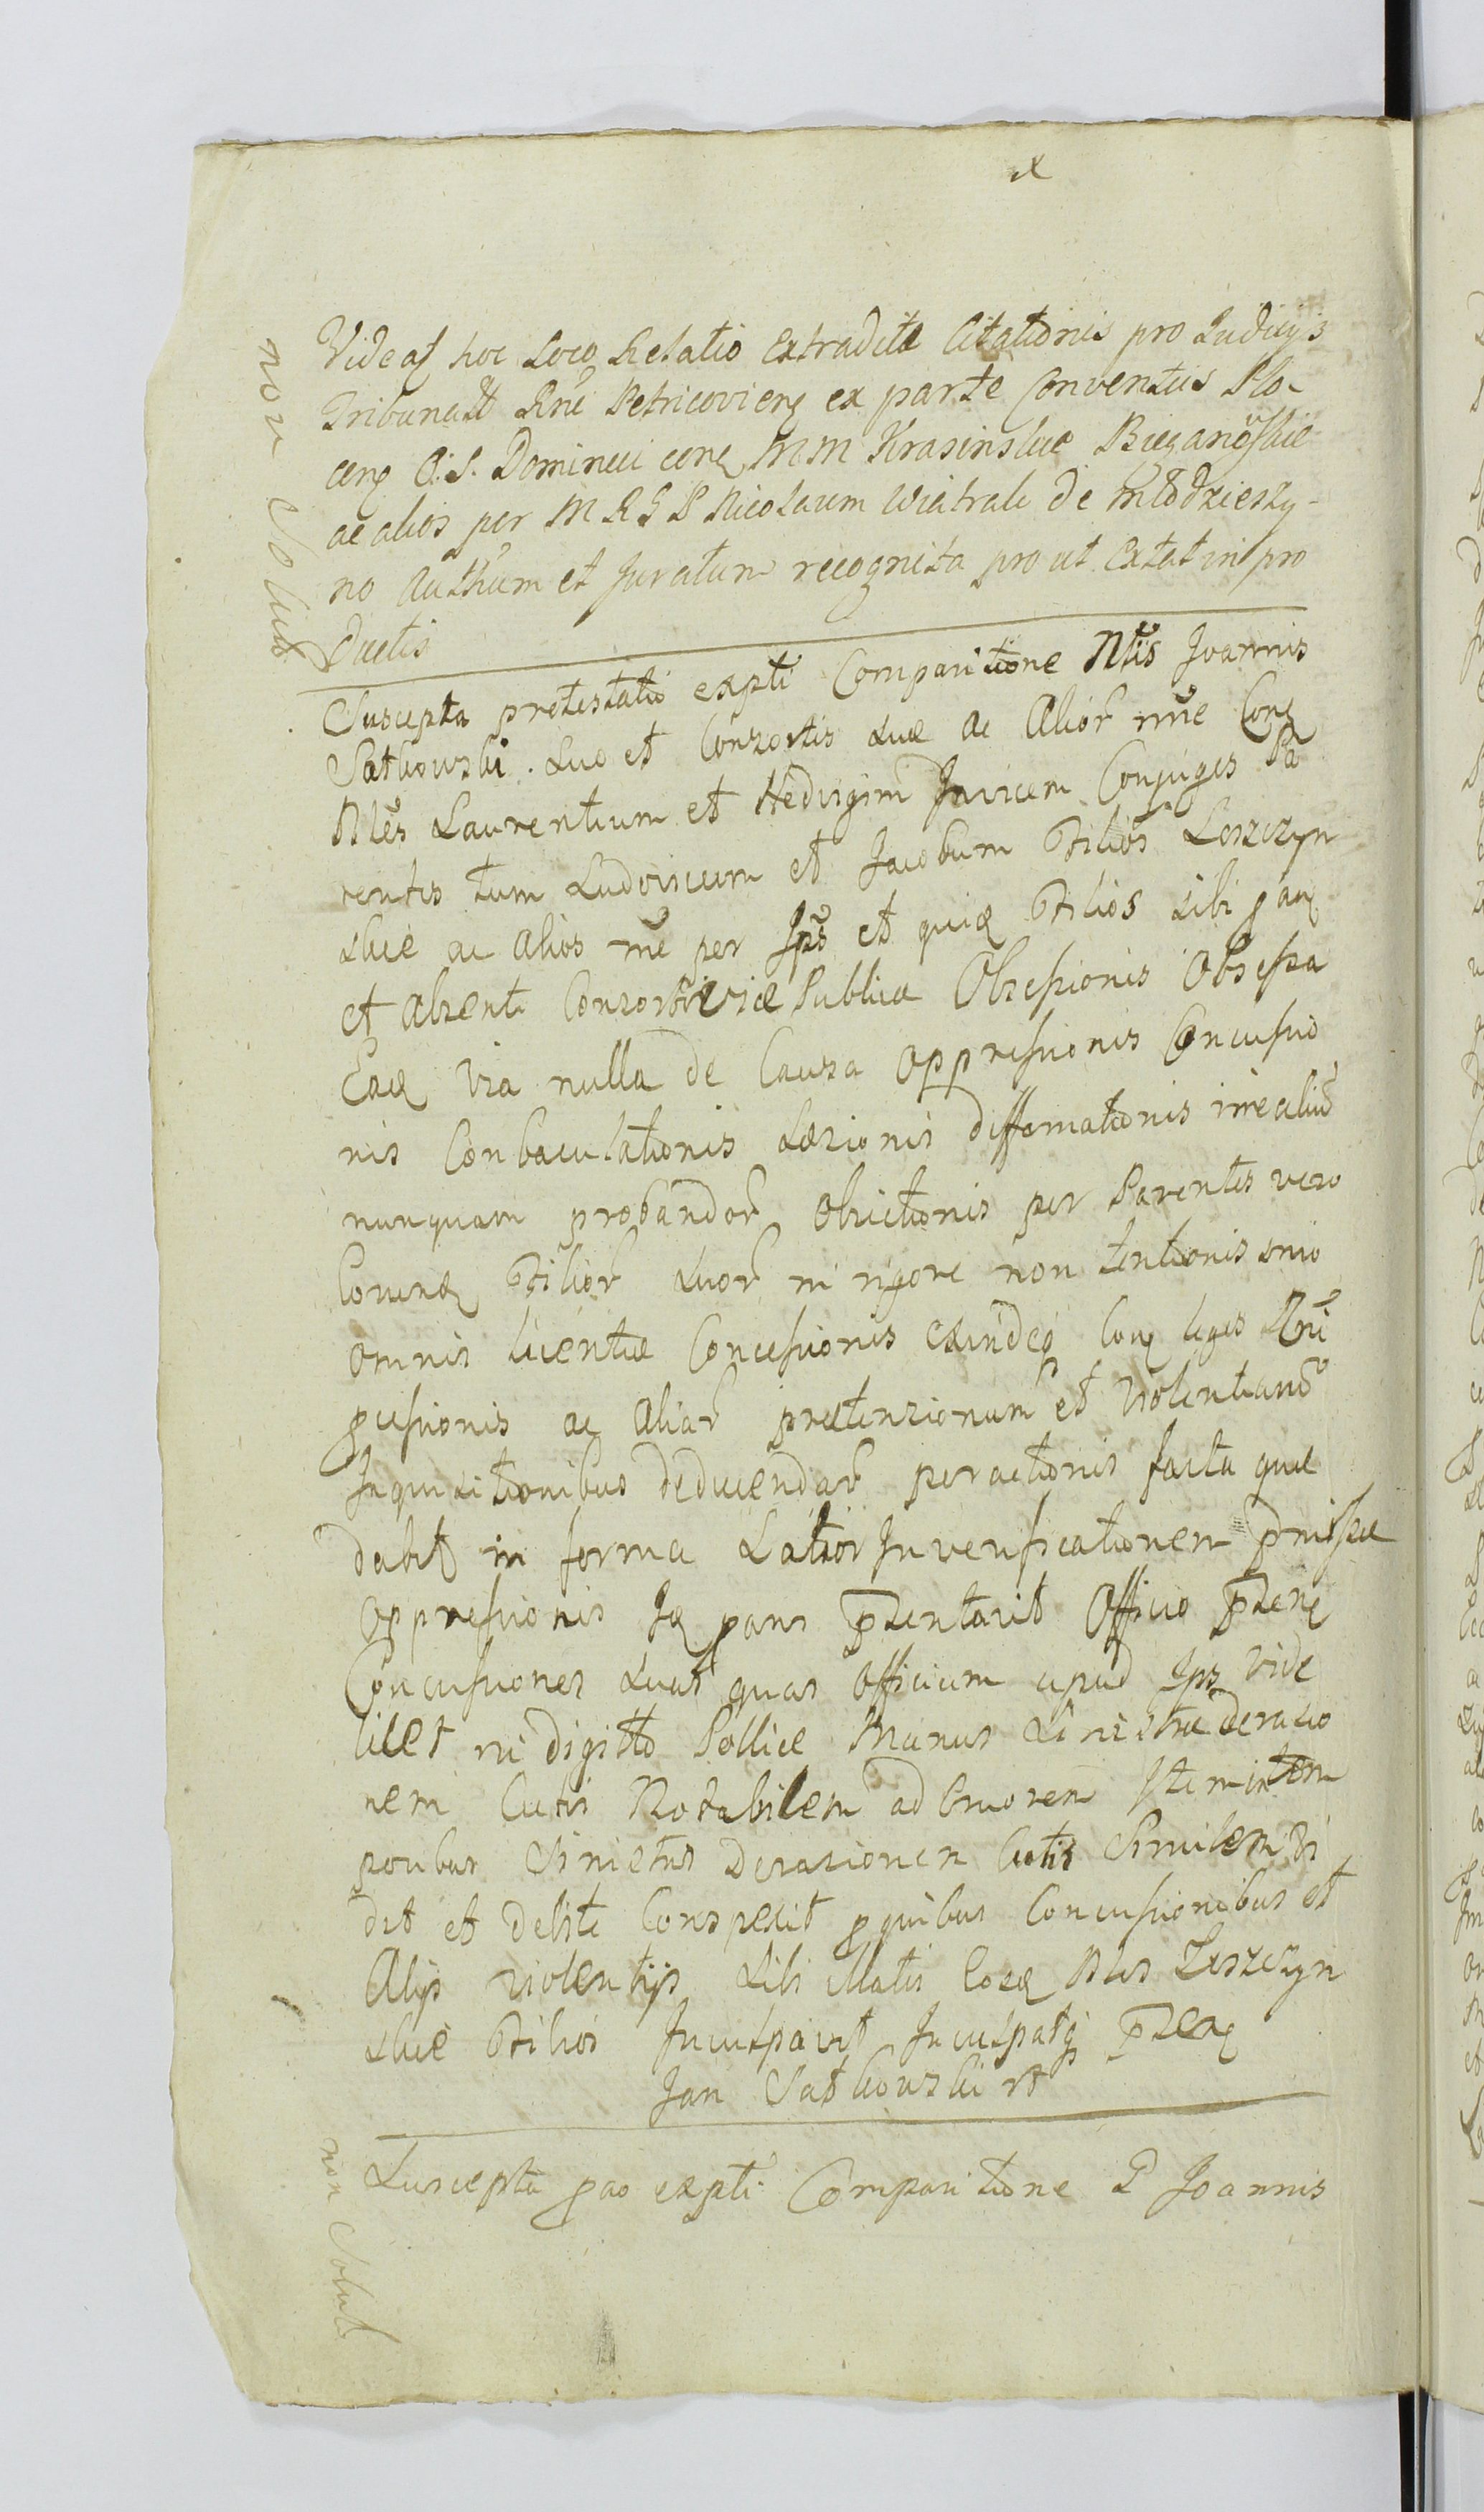 Videat hoc Loco Relatio Extraditæ Citationis pro Iudicÿs
Tribunalit Rnĩ Petricovieñ ex parte Conventus Plo-
ceñ O: S. Dominici coñ M M Krasinskie Bieganowskie
ac alios per M R G P Nicolaum Wiatrak de Młodzieszy-
no Authum et Juratum recognita pro ut Extat in pro
ductis
non Solut
Suscepta protestatio ex pti Comparitione Nlis Joannis
Satkowski. Suo et Consortis Suæ ac Alior nñe Conq
Nles Laurentium et Hedvigim Invicem Conjuges Pa
rentes tum Ludovicum et Jacobum Filios Leszczyn
skie ac Alios nẽ per Ipõs et quia Filios Sibi ganq
et Absenti Consorti Viæ Publicæ Obsessionis Obsessa
Eaq Via nulla de Causa Oppressionis Concussio
nis Conbaculationis Læsionis diffamationis irrealiũ
nunquam probandor Obiectionis per Parentes vero
Eorunq Filior Suor in rigore non tentionis imo
omnis licentiæ Concessionis exindeq Conq leges Rni
gcussionis ac Aliar prætensionum et Violentiarũ
Inquisitionibus deducendar peractionis facta quæ
dabit in forma Latior In verificationem pmissæ
Oppressionis Iq pans pzentavit Officio pzenq
Concussiones Suas quas Officium apud Ips vide
licet in digitto Pollice Manus Sinistræ derasio
nem Cutis Notabilem ad Cruorem Item in tem
poribus Sinistris Derasionem Cutis Similem vi
dit et debite Conspexit g quibus Concussionibus et
Alÿs violentÿs Sibi illatis Eosq Nles Leszczyn
skie Filios Inculpavit Inculpatq pzenq
Jan Satkowski rt
non Solut
Suscepta gao ex pti Comparitione P Joannis